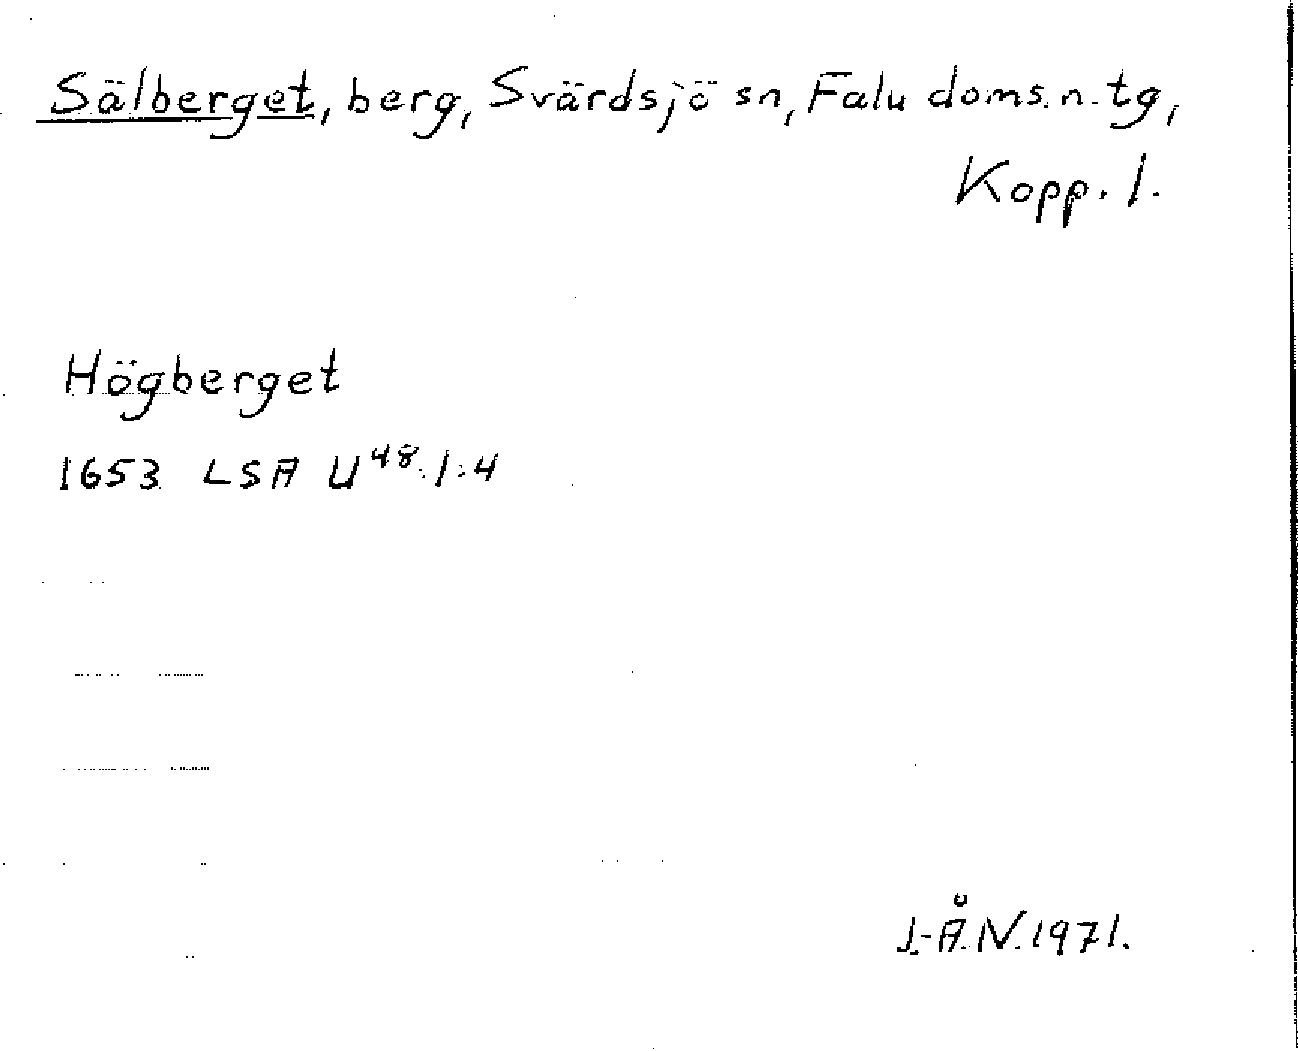 Sälberget, berg, Svärdsjö sn, Falu doms. n. tg,
Kopp. l.
Högberget
1653 LSA U48. 1:4
J.-Å. N. 1971.